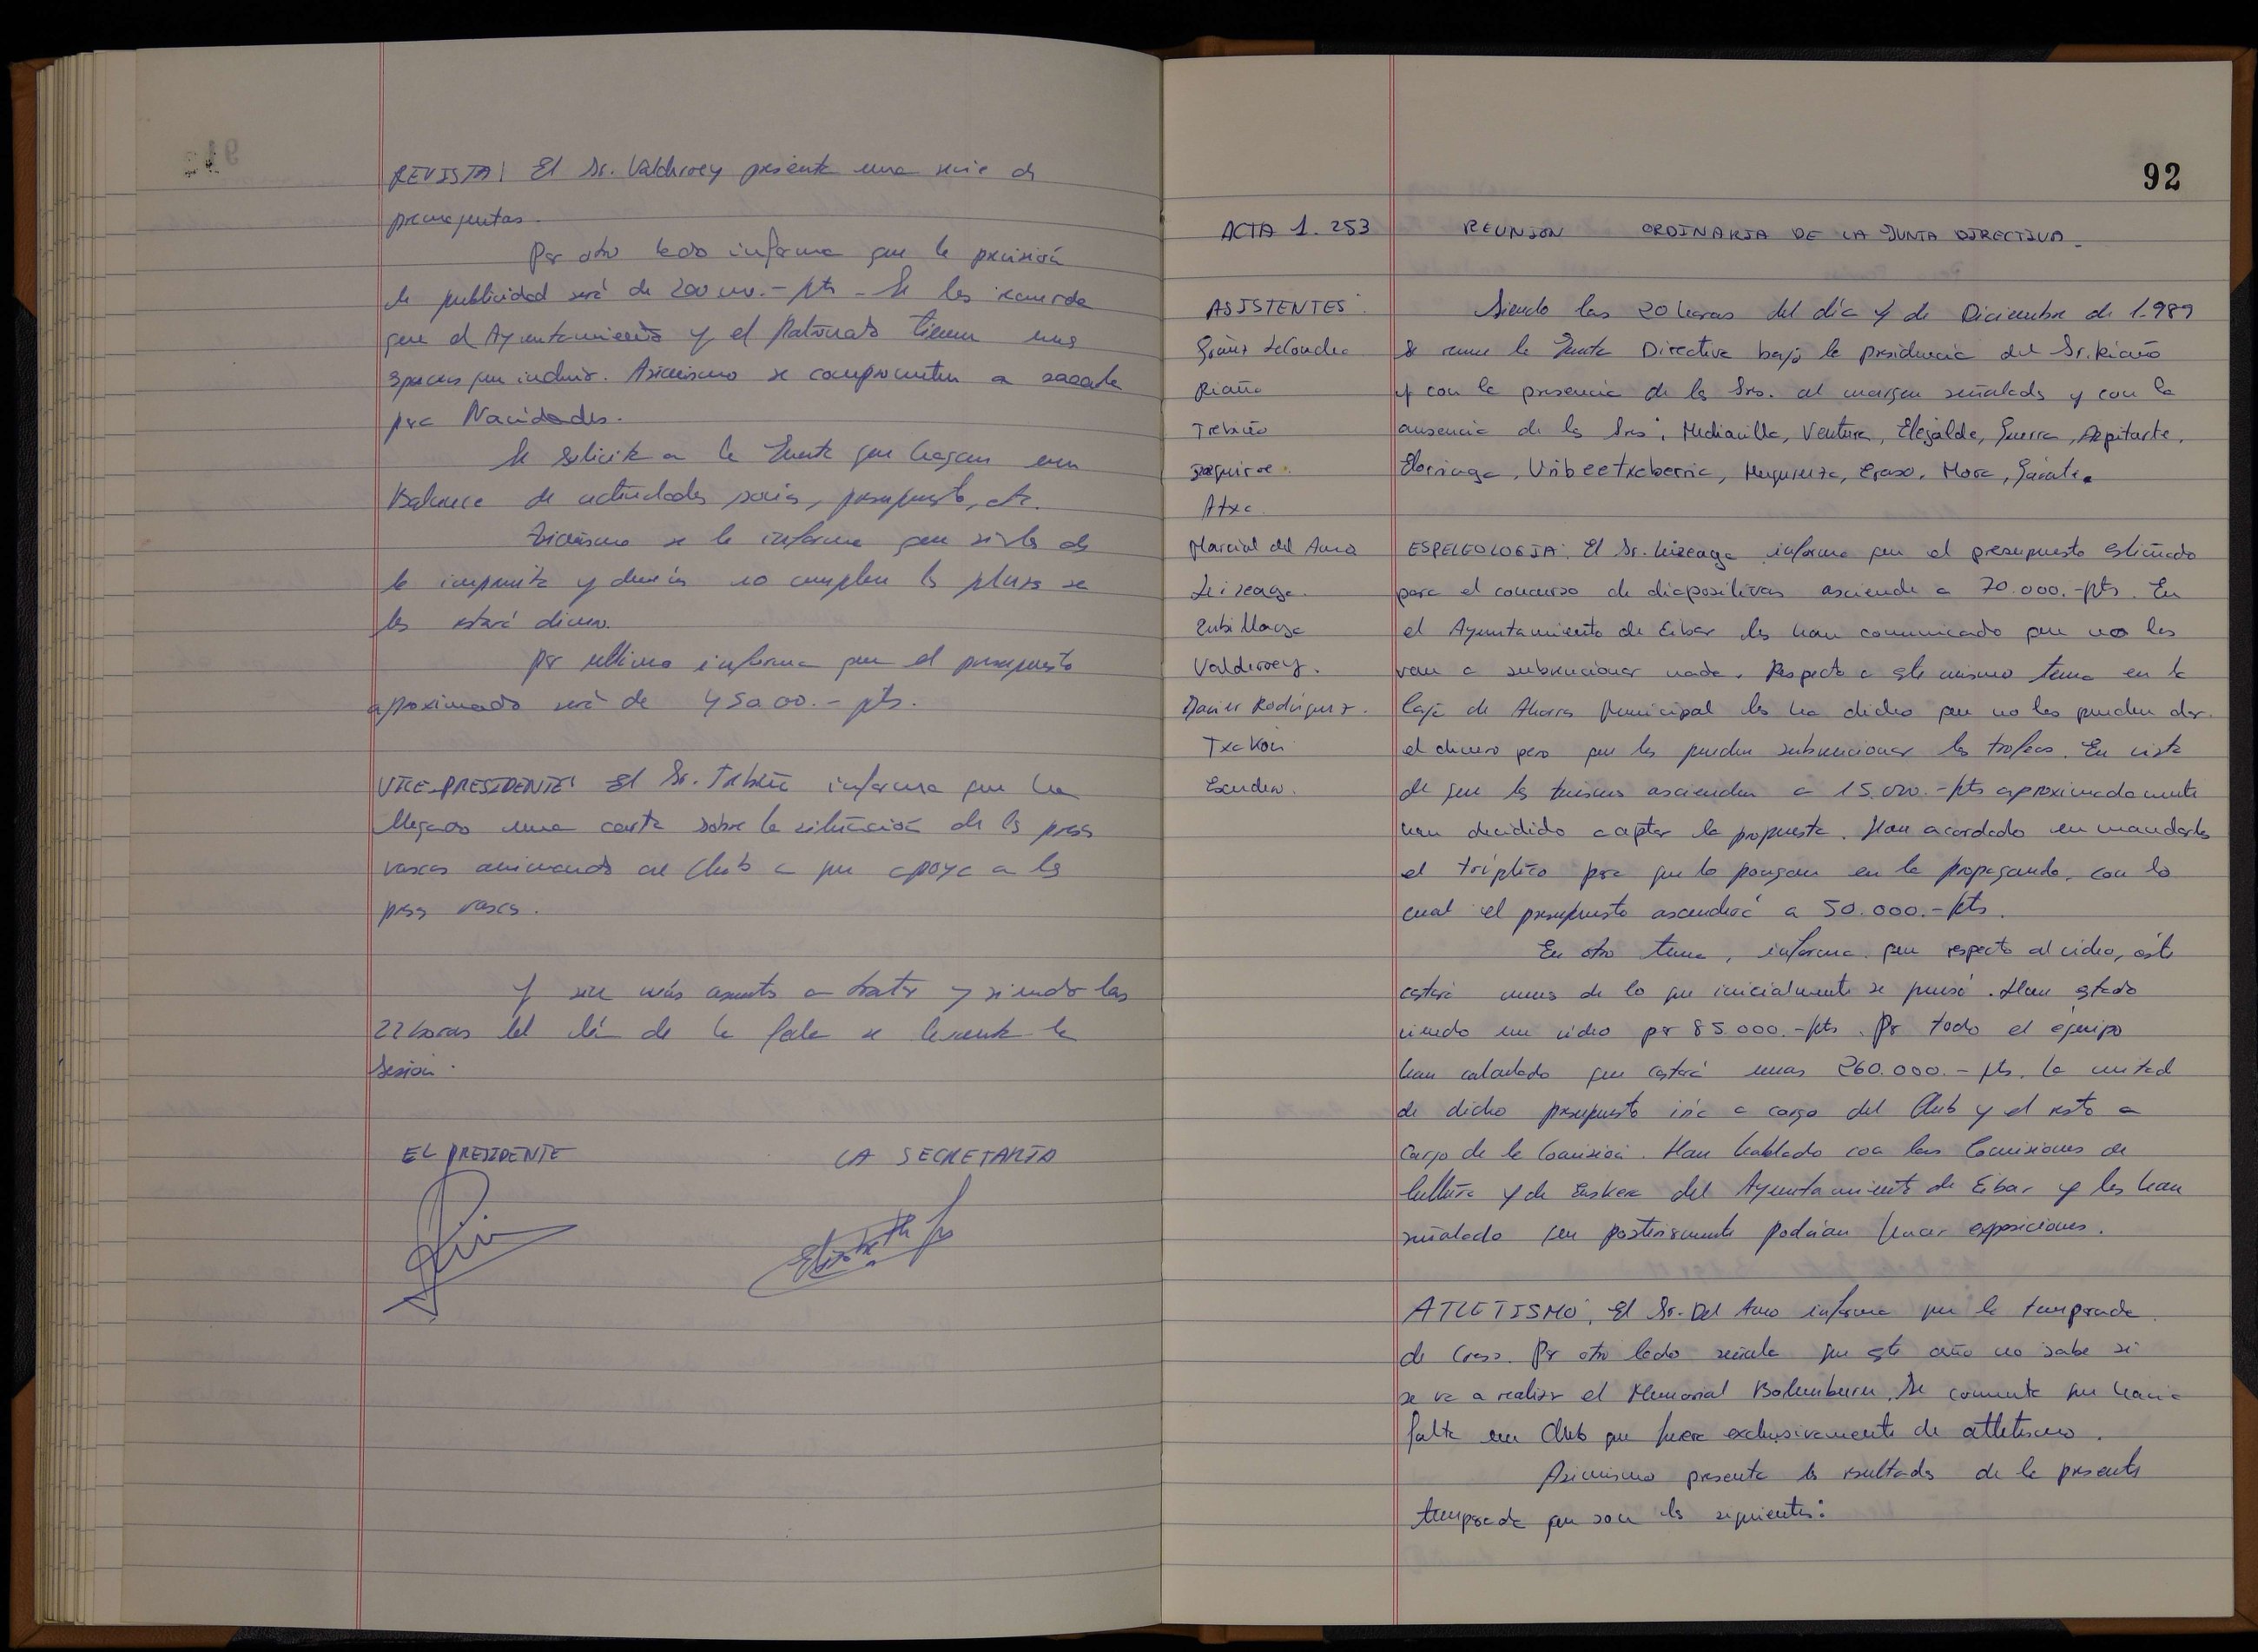 REVISTA: El Sr. Valderrey presenta una serie de
premaquetas.
Por otro lado informa que la previsión
de publicidad será de 200.000.- pts. Se les recuerda
que el Ayuntamiento y el Patronato tienen unos
espacios que incluir. Asimismo se comprometen a sacarla
para Navidades.
Se solicita a la Junta que hagan un
Balance de actividades, socios, presupuesto, etc.
Asimismo se le informa que si los de
la imprenta y demás no cumplen los plazos se
les dinero.
Por último informa que el presupuesto
aproximado será de 450.00.- pts.
VICE-PRESIDENTE: El Sr. Trebiño informa que ha
llegado una carta sobre la situación de los presos
vascos animando al Club a que apoye a los
presos vascos.
Y sin más asuntos a tratar y siendo las
22 horas del día de la fecha se levanta la
Sesión.
EL PRESIDENTE LA SECRETARIA
92
ACTA 1.253 REUNION ORDINARIA DE LA JUNTA DIRECTIVA.
ASISTENTES:
Riaño
Trebiño
Izaguirre
Atxa
Marcial del Amo
Leizeaga
Zubillaga
Valderrey.
Javier Rodriguez.
Txakon
Escudero.
Siendo las 20 horas del día 4 de Diciembre de 1.989
se reune la Junta Directiva bajo la presidencia del Sr. Riaño
y con la presencia de los Sres. al margen señalados y con la
ausencia de los Sres: Mediavilla, Ventura, Elejalde, Guerra, Azpitarte,
Eloriaga, Uribeetxeberria, Muguruza, Egaso, Mora, Gárate.
ESPELEOLOGIA: El Sr. Leizeaga informa que el presupuesto estimado
para el concurso de diapositivas asciende a 70.000.-pts. En
el Ayuntamiento de Eibar les han comunicado que no les
van a subvencionar nada. Respecto a este mismo tema en la
Caja de Ahorros Municipal les ha dicho que no les pueden dar
el dinero pero que les pueden subvencionar los trofeos. En vista
de que los mismos ascienden a 15.000.-pts aproximadamente
han decidido captar la propuesta. Han acordado en mandarles
el tríptico para que lo pongan en la propaganda, con lo
cual el presupuesto ascenderá a 50.000.-pts.
En otro tema, informa que respecto al video, éste
costará menos de lo que inicialmente se pensó. Han estado
viendo un video por 85.000.-pts. Por todo el equipo
han calculado que costará unas 260.000.- pts. La mitad
de dicho presupuesto iría a cargo del Club y el resto a
cargo de la Comisión. Han hablado con las Comisiones de
Cultura y de Euskera del Ayuntamiento de Eibar y les han
señalado que posteriormente podrían hacer exposiciones.
ATLETISMO: El Sr. Del Amo informa que la temporada
de Cross. Por otro lado señala que este año no sabe si
se va a realizar el Memorial Bolumburu. Se comenta que haría
falta un Club que fuera exclusivamente de atletismo.
Asimismo presenta los resultados de la presente
temporada que son los siguientes: